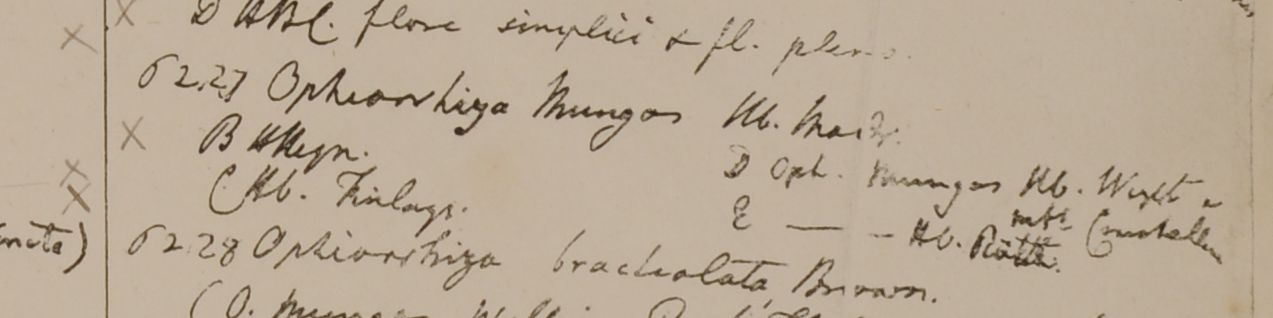 D HBC. flore simplici & fl. pleno.
6227 Ophiorrhiza Mungos Hb. Madr.
B HHeyn.
C Hb. Finlays.
D Oph. Mungos Hb. Wight
E — - Hb. Rottl.
6228 Ophiorrhiza bracteolata, Brown.
(O. Mungos